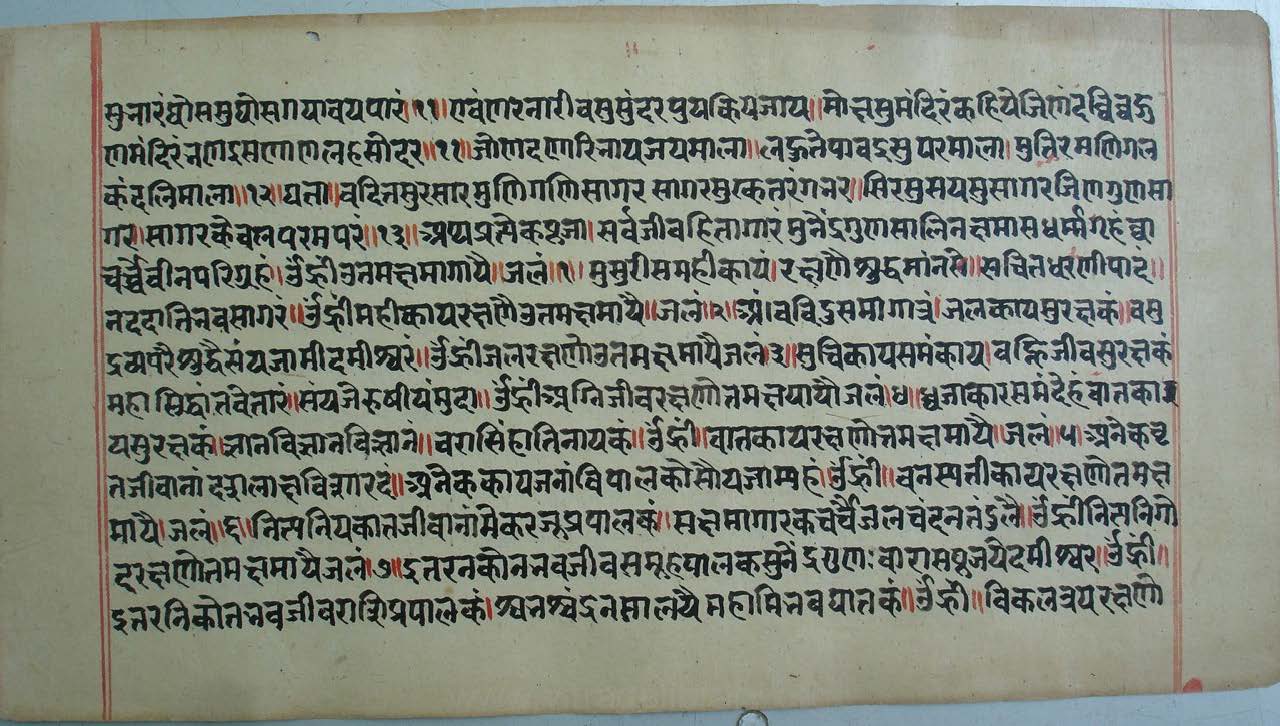 मुनारंधीसमुधीसगयावयपारं॥११॥तवंतारनारीवसुसुंदरपुयकियजाय॥मोक्षसुमंदिरंकहियैजिणंदंधिवद्रु
णमंदिरंनणइसणाणलहसोदर॥११॥जोणदणारिनायजयमाला॥लद्रुनैपावइसुपरमाला।मुनिरमणिगल
कंदलिमाला॥१२॥घत्ता॥वदितसुरसारमुणिगणिसागरसागरसुरकतरंगन्नर॥सिरसुसयसुसागरजिणगुणसा
गर॥सागरकेवलपरमपरं॥१३॥अथप्रत्येकपूजा॥सर्वजीवहितागारंमुनैंद्रगुणसालिनक्षमासधर्म्मगेहंच्चा
चर्च्चेवीनपरिग्रहं।ॐह्रीउतमक्षमागायै॥जलं॥१॥सुसुरीसमहीकायं।रक्षणैशुद्धमांनसै॥सचितधरणीपाद॥
नददातिनवसागरं॥ॐह्रींमहीकायरक्षणैउतमक्षमायै॥जलं॥२॥आंवविंदुसमागात्रं।जलकायसुरक्षकं॥वसु
द्रव्यपरैशुद्धैसंयजामीदमीश्वरं॥ॐह्रींजलरक्षणोउतमक्षमायैजलं३॥सुचिकायसमंकाय।वह्निजीवसुरक्षकं
महासिद्धांतवेतारं॥संयजैरुषीयंमुदा॥ॐह्रींअग्निजीवरक्षणोतमक्षयायौजलं॥४॥ध्वजाकारसमंदेहंवातका
यसुरक्षकं।ज्ञानविज्ञानविज्ञानं॥वरासिंहातिनायकं॥ॐह्रीं॥वातकायरक्षणोत्तमक्षमायै॥जलं॥५॥अनेकवृ
तजीवानांदयालाक्षविचारदं॥अनेककायजनांधिपालकोसौयजाम्यहं।ॐह्रीं॥वनस्पतीकायरक्षणोतमक्ष
मायै।जलं॥६॥नित्पनियकातजीवानांमेकरजूप्रपालकं॥सक्षमागारकचर्च्चैजलचंदनतंडुलै॥ॐह्रींनित्यनिगो
दरक्षणोतमक्षमायैजलं॥७॥इतरनकोननवजीवसमूहपालकमुनेंद्रगुणः॥वारासपूजयेदमीश्वर॥ॐह्रीं॥
इतरनिकोतनवजीवराशिप्रपालकं॥श्वनश्वंदनसालयैमहामिनवपातकं॥ॐह्रीं॥विकलत्रयरक्षणो